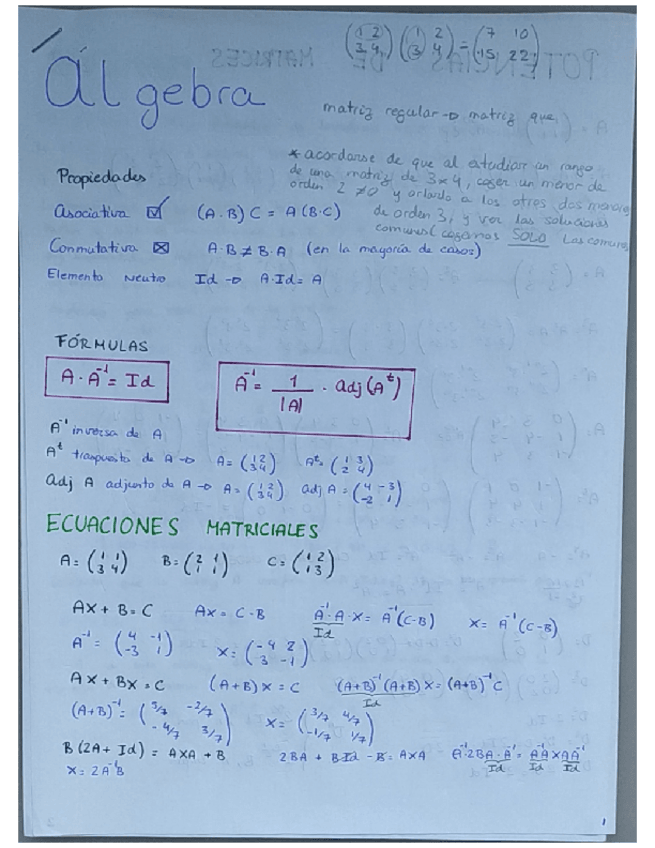 (1 2 / 3 4) (1 2 / 3 4) = (7 10 / 15 22)
Álgebra
matriz regular → matriz que
* acordarse de que al estudiar un rango
de una matriz de 3x4, coger un menor de
orden 2 ≠0 y orlarlo a los otros dos menores
de orden 3, y ver las soluciones
comunes (cogemos SOLO las comunes)
Propiedades
Asociativa ☑ (A·B) C = A (B·C)
Conmutativa ☒ A·B ≠ B·A (en la mayoría de casos)
Elemento Neutro Id → A·Id = A
FÓRMULAS
A · A⁻¹ = Id
A⁻¹ = 1/|A| · adj (Aᵗ)
A⁻¹ inversa de A
Aᵗ traspuesta de A → A = (1 2 / 3 4) Aᵗ = (1 3 / 2 4)
Adj A adjunto de A → A = (1 2 / 3 4) adj A = (4 -3 / -2 1)
ECUACIONES MATRICIALES
A = (1 1 / 3 4) B = (2 1 / 1 1) C = (1 2 / 1 3)
AX + B = C AX = C - B A⁻¹·A·X = A⁻¹(C-B) X = A⁻¹(C-B)
Id
A⁻¹ = (4 -1 / -3 1) X = (-4 2 / 3 -1)
AX + BX = C (A+B) X = C (A+B)⁻¹ (A+B) X = (A+B)⁻¹ C
Id
(A+B)⁻¹ = (5/7 -2/7 / -4/7 3/7) X = (3/7 4/7 / -1/7 1/7)
B (2A + Id) = AXA + B 2BA + B·Id - B = AXA A⁻¹·2BA·A⁻¹ = A⁻¹A X A A⁻¹
Id Id Id
X = 2A⁻¹B
1